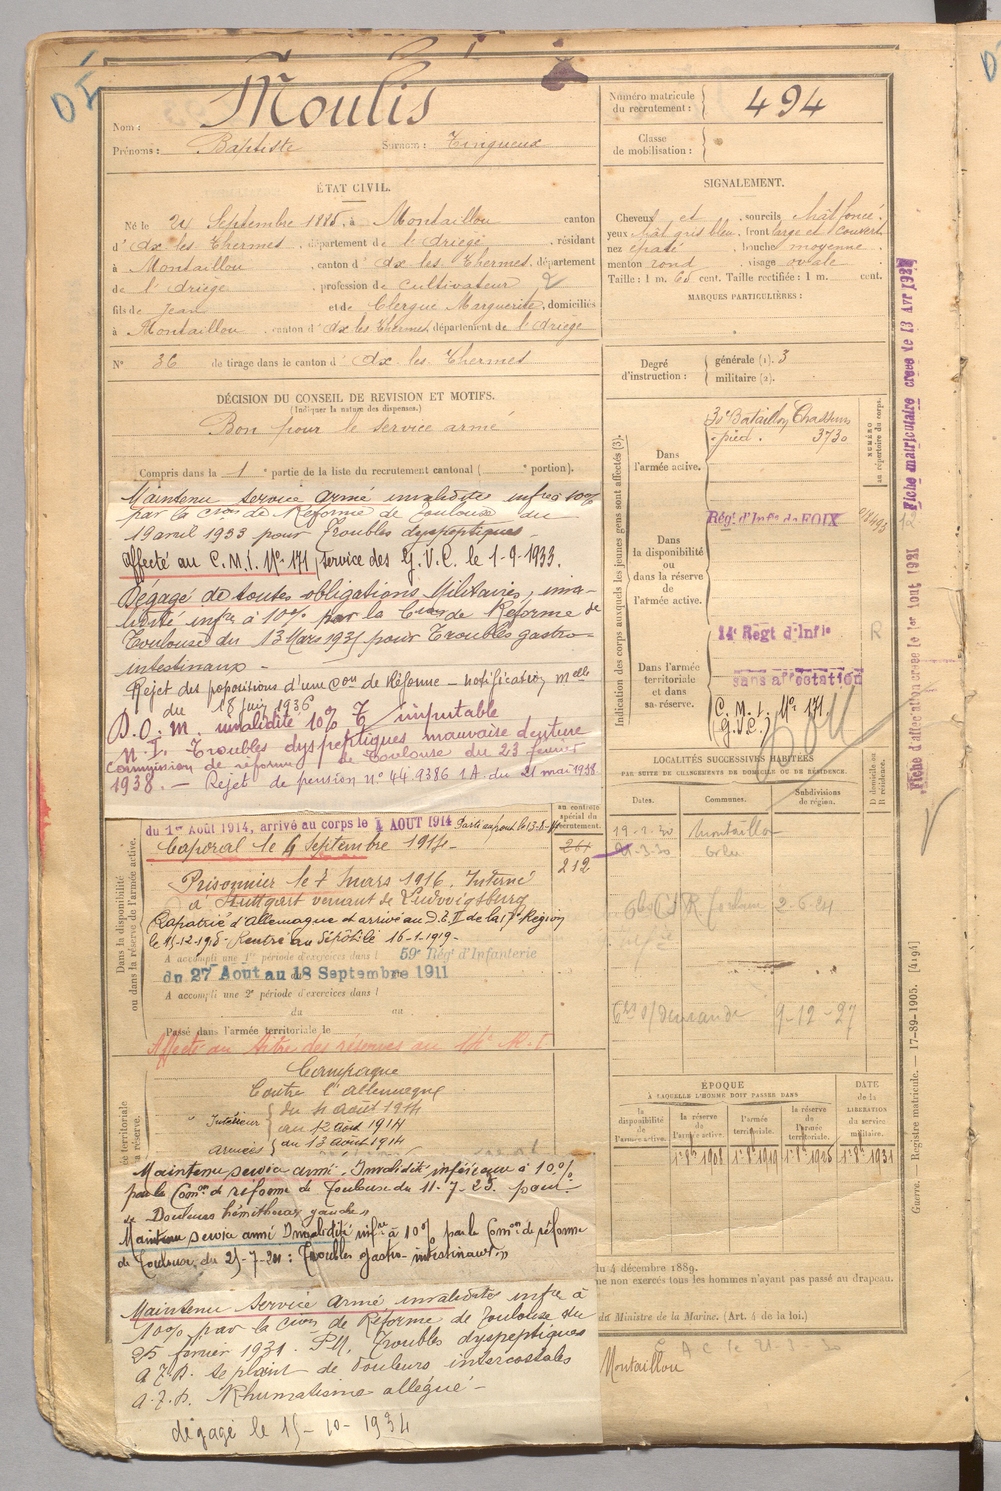 Moulis
Nom :
Prénoms : Baptiste Surnom : Tinqueux
Numéro matricule du recrutement : 494
Classe de mobilisation :
ÉTAT CIVIL.
Né le 24 Septembre 1885, à Montaillou canton
d'Ax les Thermes, département de l'Ariège, résidant
à Montaillou, canton d'Ax les Thermes, département
de l'Ariège, profession de cultivateur
fils de Jean et de Clergue Marguerite, domiciliés
à Montaillou, canton d'Ax les Thermes, département de l'Ariège
N° 36 de tirage dans le canton d'Ax les Thermes
SIGNALEMENT.
Cheveux et sourcils chât foncé.
yeux chât gris bleu, front large et couvert
nez épaté, bouche moyenne.
menton rond, visage ovale.
Taille : 1 m. 65 cent. Taille rectifiée : 1 m. cent.
MARQUES PARTICULIÈRES :
Degré d'instruction : générale (1). 3
militaire (2).
DÉCISION DU CONSEIL DE REVISION ET MOTIFS.
(Indiquer la nature des dispenses.)
Bon pour le service armé
Compris dans la 1e partie de la liste du recrutement cantonal ( e portion).
Maintenu service armé invalidités infre à 10%
par la cion de Réforme de Toulouse du
19 avril 1933 pour Troubles dyspeptiques
Affecté au C.M.I. N° 171, service des G.V.C. le 1-9-1933.
Dégagé de toutes obligations Militaires, inva-
lidité infre à 10% par la Con de Réforme de
Toulouse du 13 Mars 1935 pour Troubles gastro-
intestinaux -
Rejet des propositions d'une Con de Réforme - notification melle
du 18 juin 1936
D.O.M. invalidité 10% T imputable
N.I. Troubles dyspeptiques mauvaise denture
Commission de réforme de Toulouse du 23 février
1938. - Rejet de pension n° 449386 1A. du 21 mai 1938
Indication des corps auxquels les jeunes gens sont affectés (3).
Dans l'armée active.
30e Bataillon Chasseurs
à pied. 3730
NUMÉRO au répertoire du corps.
Dans la disponibilité ou dans la réserve de l'armée active.
Régt d'Infie de FOIX
Dans l'armée territoriale et dans sa réserve.
14e Régt d'Infie R
sans affectation
C.M.I. N° 171
G.V.C.
Fiche matriculaire créée le 13 Avr 1927
Fiche d'affectation créée le 1er Août 1921
LOCALITÉS SUCCESSIVES HABITÉES
PAR SUITE DE CHANGEMENTS DE DOMICILE OU DE RÉSIDENCE.
Dates. Communes. Subdivisions de région. D domicile ou R résidence.
19-2-30 Montaillou
21-3-30 Orlu
2-6-24
9-12-27
Dans la disponibilité ou dans la réserve de l'armée active.
au contrôle spécial du recrutement.
du 1er Août 1914, arrivé au corps le 4 AOUT 1914
Caporal le 4 Septembre 1914.
261
212
Prisonnier le 7 mars 1916. Interné
à Stuttgart venant de Ludwigsburg
Rapatrié d'Allemagne et arrivé au D.E.I de la 17e Région
Rentré au Dépôt le 16-1-1919-
A accompli une 1re période d'exercices dans l 59e Régt d'Infanterie
du 27 Août au 18 Septembre 1911
A accompli une 2e période d'exercices dans l
du au
Passé dans l'armée territoriale le
Affecté au titre des réserves au 14e R.I
Campagne
Contre l'Allemagne
Intérieur du 4 août 1914
au 12 août 1914
armées du 13 août 1914
ÉPOQUE
À LAQUELLE L'HOMME DOIT PASSER DANS
la disponibilité de l'armée active. la réserve de l'armée active. l'armée territoriale. la réserve de l'armée territoriale.
DATE de la LIBÉRATION du service militaire.
Maintenu service armé. Invalidité inférieure à 10%
par la Comon de réforme de Toulouse du 11-7-25. pour
Douleurs hémithorax gauche
Maintenu service armé Invalidité infre à 10% par la Comon de réforme
de Toulouse, du 25-7-24 : Troubles gastro-intestinaux
Maintenu service armé, invalidités infre à
10% par la cion de Réforme de Toulouse du
25 février 1931. P.M. Troubles dyspeptiques
a.f.p. se plaint de Douleurs intercostales
a.f.p. Rhumatisme allégué -
dégagé le 15-10-1934
du 4 décembre 1889.
me non exercés tous les hommes n'ayant pas passé au drapeau.
du Ministre de la Marine. (Art. 4 de la loi.)
Montaillou
Guerre. — Registre matricule. — 17-89-1905. [4194]